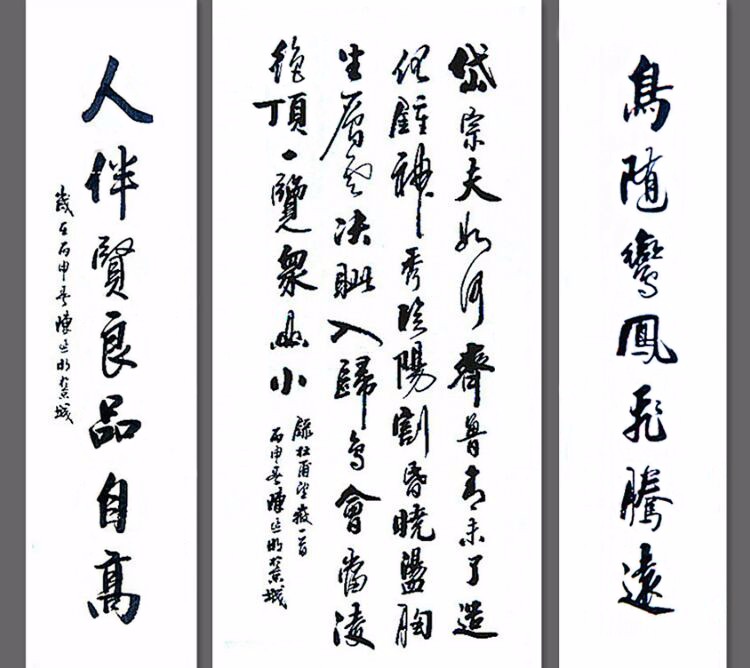 鳥随鸞鳳飛騰遠
岱宗夫如何齊魯青未了造
化鍾神秀陰陽割昏曉盪胸
生層雲決眦入歸鳥會當凌
絶頂一覽衆山小
録杜甫望嶽一首
丙申冬陳城
人伴賢良品自高
歲在丙申冬陳城